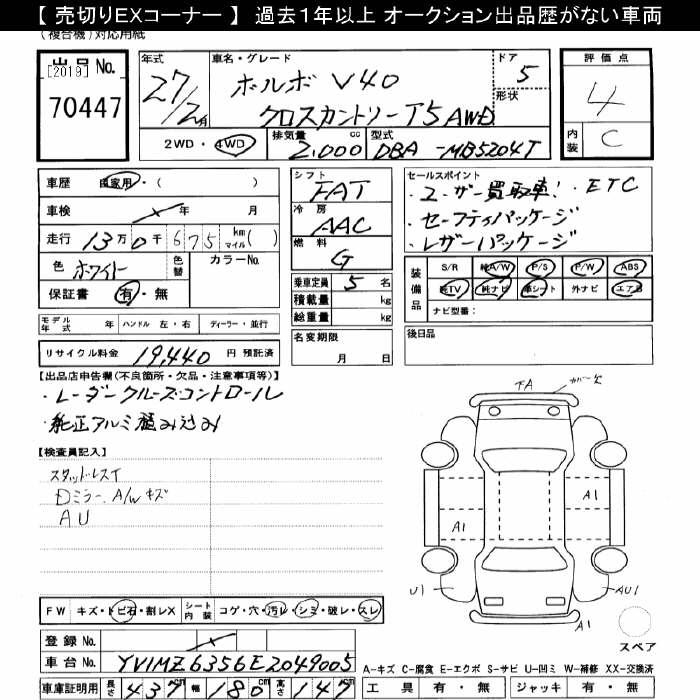 【 売切りEXコーナー 】 過去１年以上 オークション出品歴がない車両
(複合機)対応用紙
出品 No.
[2019]
70447
年式
27/2月
車名・グレード
ボルボ V40
クロスカントリーT5 AWD
ドア
5
形状
2WD・4WD
排気量
2,000 cc
型式
DBA - MB5204T
評価点
4
内装
C
車歴 自家用・( )
車検 年 月
走行 13万0千675 km マイル( )
色 ホワイト 色替
カラーNo.
保証書 有・無
シフト
FAT
冷房
AAC
燃料
G
乗車定員 5 名
積載量 kg
総重量 kg
セールスポイント
・ユーザー買取車! ・ETC
・セーフティパッケージ
・レザーパッケージ
装備品
S/R 純A/W P/S P/W ABS
純TV 純ナビ 革シート 外ナビ エアB
ナビ型番:
モデル年式 年 ハンドル 左・右 ディーラー・並行
リサイクル料金 19,440 円 預託済
名変期限
月 日
後日品
【出品店申告欄(不良箇所・欠品・注意事項等)】
・レーダークルーズコントロール
・純正アルミ積み込み
【検査員記入】
スタッドレスT
Dミラー、A/Wキズ
AU
FA ガー欠
A1
A1
U1
AU1
A1
スペア
FW キズ・トビ石・割レX シート内装 コゲ・穴・汚レ・シミ・破レ・スレ
登録 No.
車台 No. YV1MZ6356E2049005
車庫証明用 長さ 437 cm 幅 180 cm 高さ 147
A-キズ C-腐食 E-エクボ S-サビ U-凹ミ W-補修 XX-交換済
工具 有・無 ジャッキ 有・無